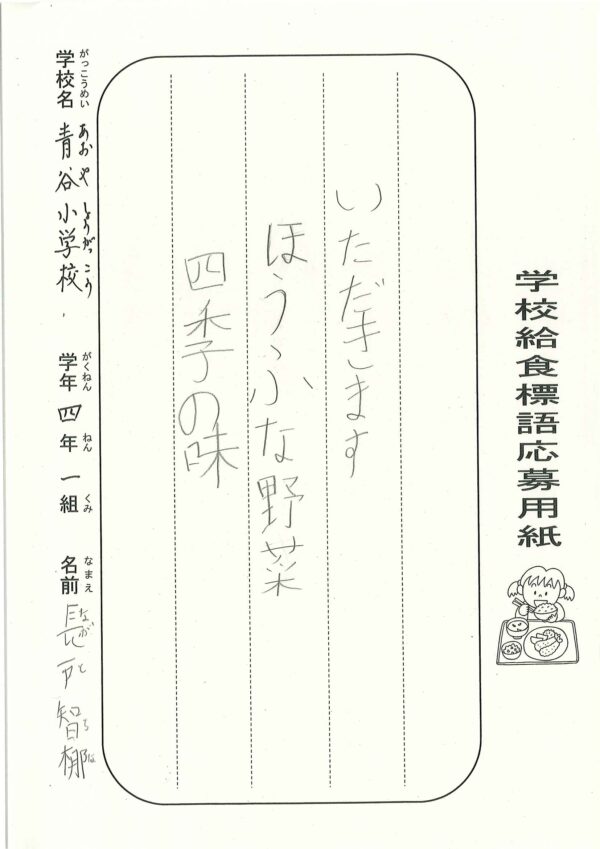 学校給食標語応募用紙
いただきます
ほうふな野菜
四季の味
がっこうめい あおや しょうがっこう がくねん ねん くみ なまえ ながと
学校名 青谷小学校 学年 四年 一組 名前 長戸 智